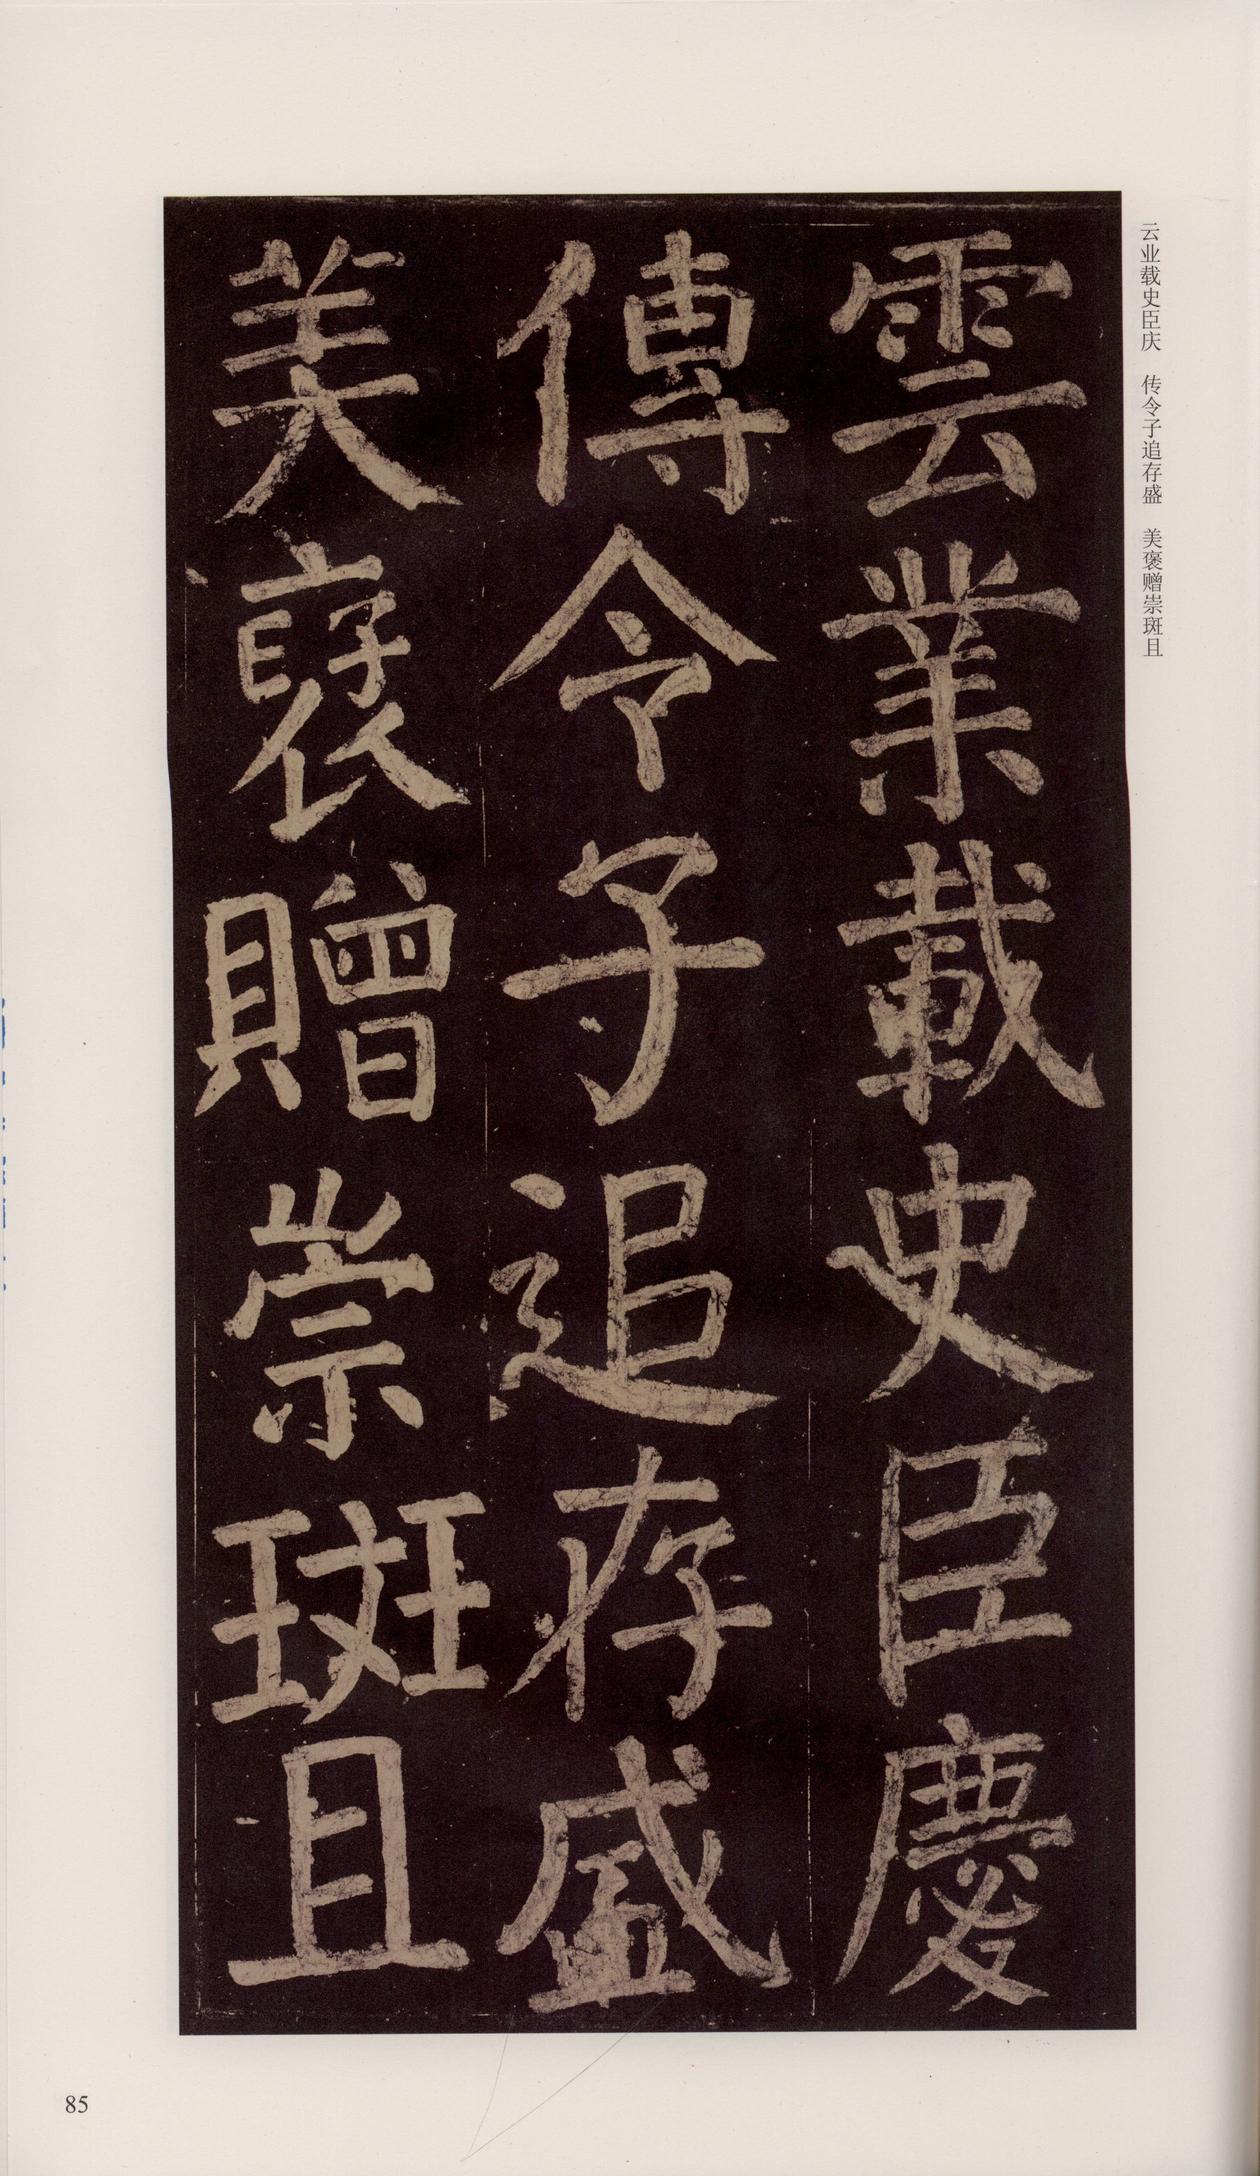 云业载史臣庆 传令子追存盛 美褒赠崇斑且
雲業載史臣慶
傳令子追存盛
美襃贈崇斑且
85